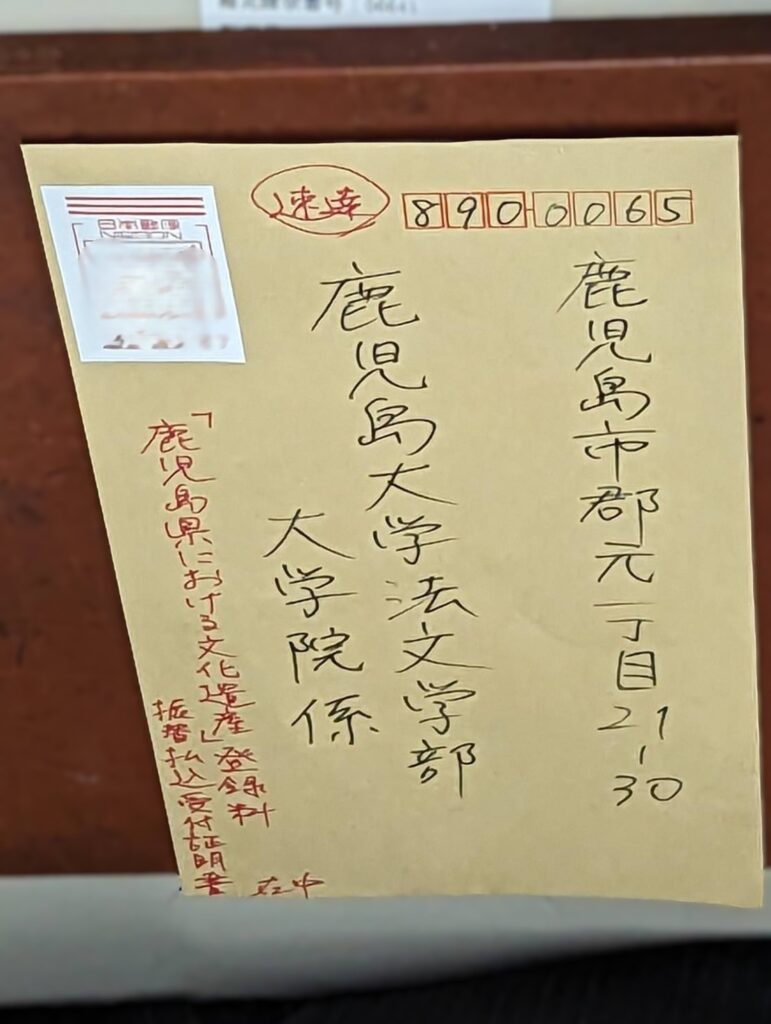 速達
8900065
鹿児島市郡元一丁目21-30
鹿児島大学法文学部
大学院係
「鹿児島県における文化遺産」登録料
振替払込受付証明書
在中
日本郵便
NIPPON